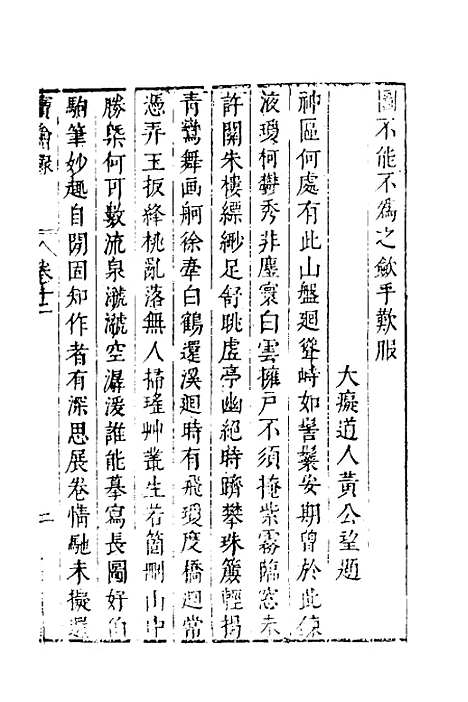 圖不能不為之斂手歎服
大癡道人黃公望題
神區何處有此山盤廻聳峙如髻鬟安期曾於此餐
液瓊柯鬱秀非塵寰白雲擁戶不須掩紫霧臨窓未
許關朱樓縹緲足舒眺虛亭幽絕時躋攀珠簾輕揭
青鸞舞画舸徐牽白鶴還溪廻時有飛瓊度橋廻常
憑弄玉扳絳桃亂落無人掃瑤艸叢生若箇刪山中
勝槩何可數流泉㶁㶁空潺湲誰能摹寫長圖好
駒筆妙趣自閒固知作者有深思展卷情馳未擬還
寶繪錄
卷十二
二